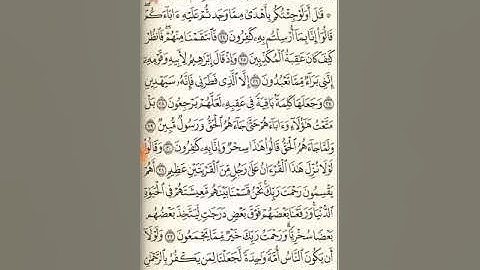 ۞ قَٰلَ أَوَلَوْ جِئْتُكُم بِأَهْدَىٰ مِمَّا وَجَدتُّمْ عَلَيْهِ ءَابَآءَكُمْ ۖ
قَالُوٓا۟ إِنَّا بِمَآ أُرْسِلْتُم بِهِۦ كَٰفِرُونَ ٢٤ فَٱنتَقَمْنَا مِنْهُمْ ۖ فَٱنظُرْ
كَيْفَ كَانَ عَٰقِبَةُ ٱلْمُكَذِّبِينَ ٢٥ وَإِذْ قَالَ إِبْرَٰهِيمُ لِأَبِيهِ وَقَوْمِهِۦٓ
إِنَّنِى بَرَآءٌ مِّمَّا تَعْبُدُونَ ٢٦ إِلَّا ٱلَّذِى فَطَرَنِى فَإِنَّهُۥ سَيَهْدِينِ
٢٧ وَجَعَلَهَا كَلِمَةًۢ بَاقِيَةً فِى عَقِبِهِۦ لَعَلَّهُمْ يَرْجِعُونَ ٢٨ بَلْ
مَتَّعْتُ هَٰٓؤُلَآءِ وَءَابَآءَهُمْ حَتَّىٰ جَآءَهُمُ ٱلْحَقُّ وَرَسُولٌ مُّبِينٌ ٢٩
وَلَمَّا جَآءَهُمُ ٱلْحَقُّ قَالُوا۟ هَٰذَا سِحْرٌ وَإِنَّا بِهِۦ كَٰفِرُونَ ٣٠ وَقَالُوا۟
لَوْلَا نُزِّلَ هَٰذَا ٱلْقُرْءَانُ عَلَىٰ رَجُلٍ مِّنَ ٱلْقَرْيَتَيْنِ عَظِيمٍ ٣١ أَهُمْ
يَقْسِمُونَ رَحْمَتَ رَبِّكَ ۚ نَحْنُ قَسَمْنَا بَيْنَهُم مَّعِيشَتَهُمْ فِى ٱلْحَيَوٰةِ
ٱلدُّنْيَا ۚ وَرَفَعْنَا بَعْضَهُمْ فَوْقَ بَعْضٍ دَرَجَٰتٍ لِّيَتَّخِذَ بَعْضُهُم
بَعْضًا سُخْرِيًّا ۗ وَرَحْمَتُ رَبِّكَ خَيْرٌ مِّمَّا يَجْمَعُونَ ٣٢ وَلَوْلَآ
أَن يَكُونَ ٱلنَّاسُ أُمَّةً وَٰحِدَةً لَّجَعَلْنَا لِمَن يَكْفُرُ بِٱلرَّحْمَٰنِ